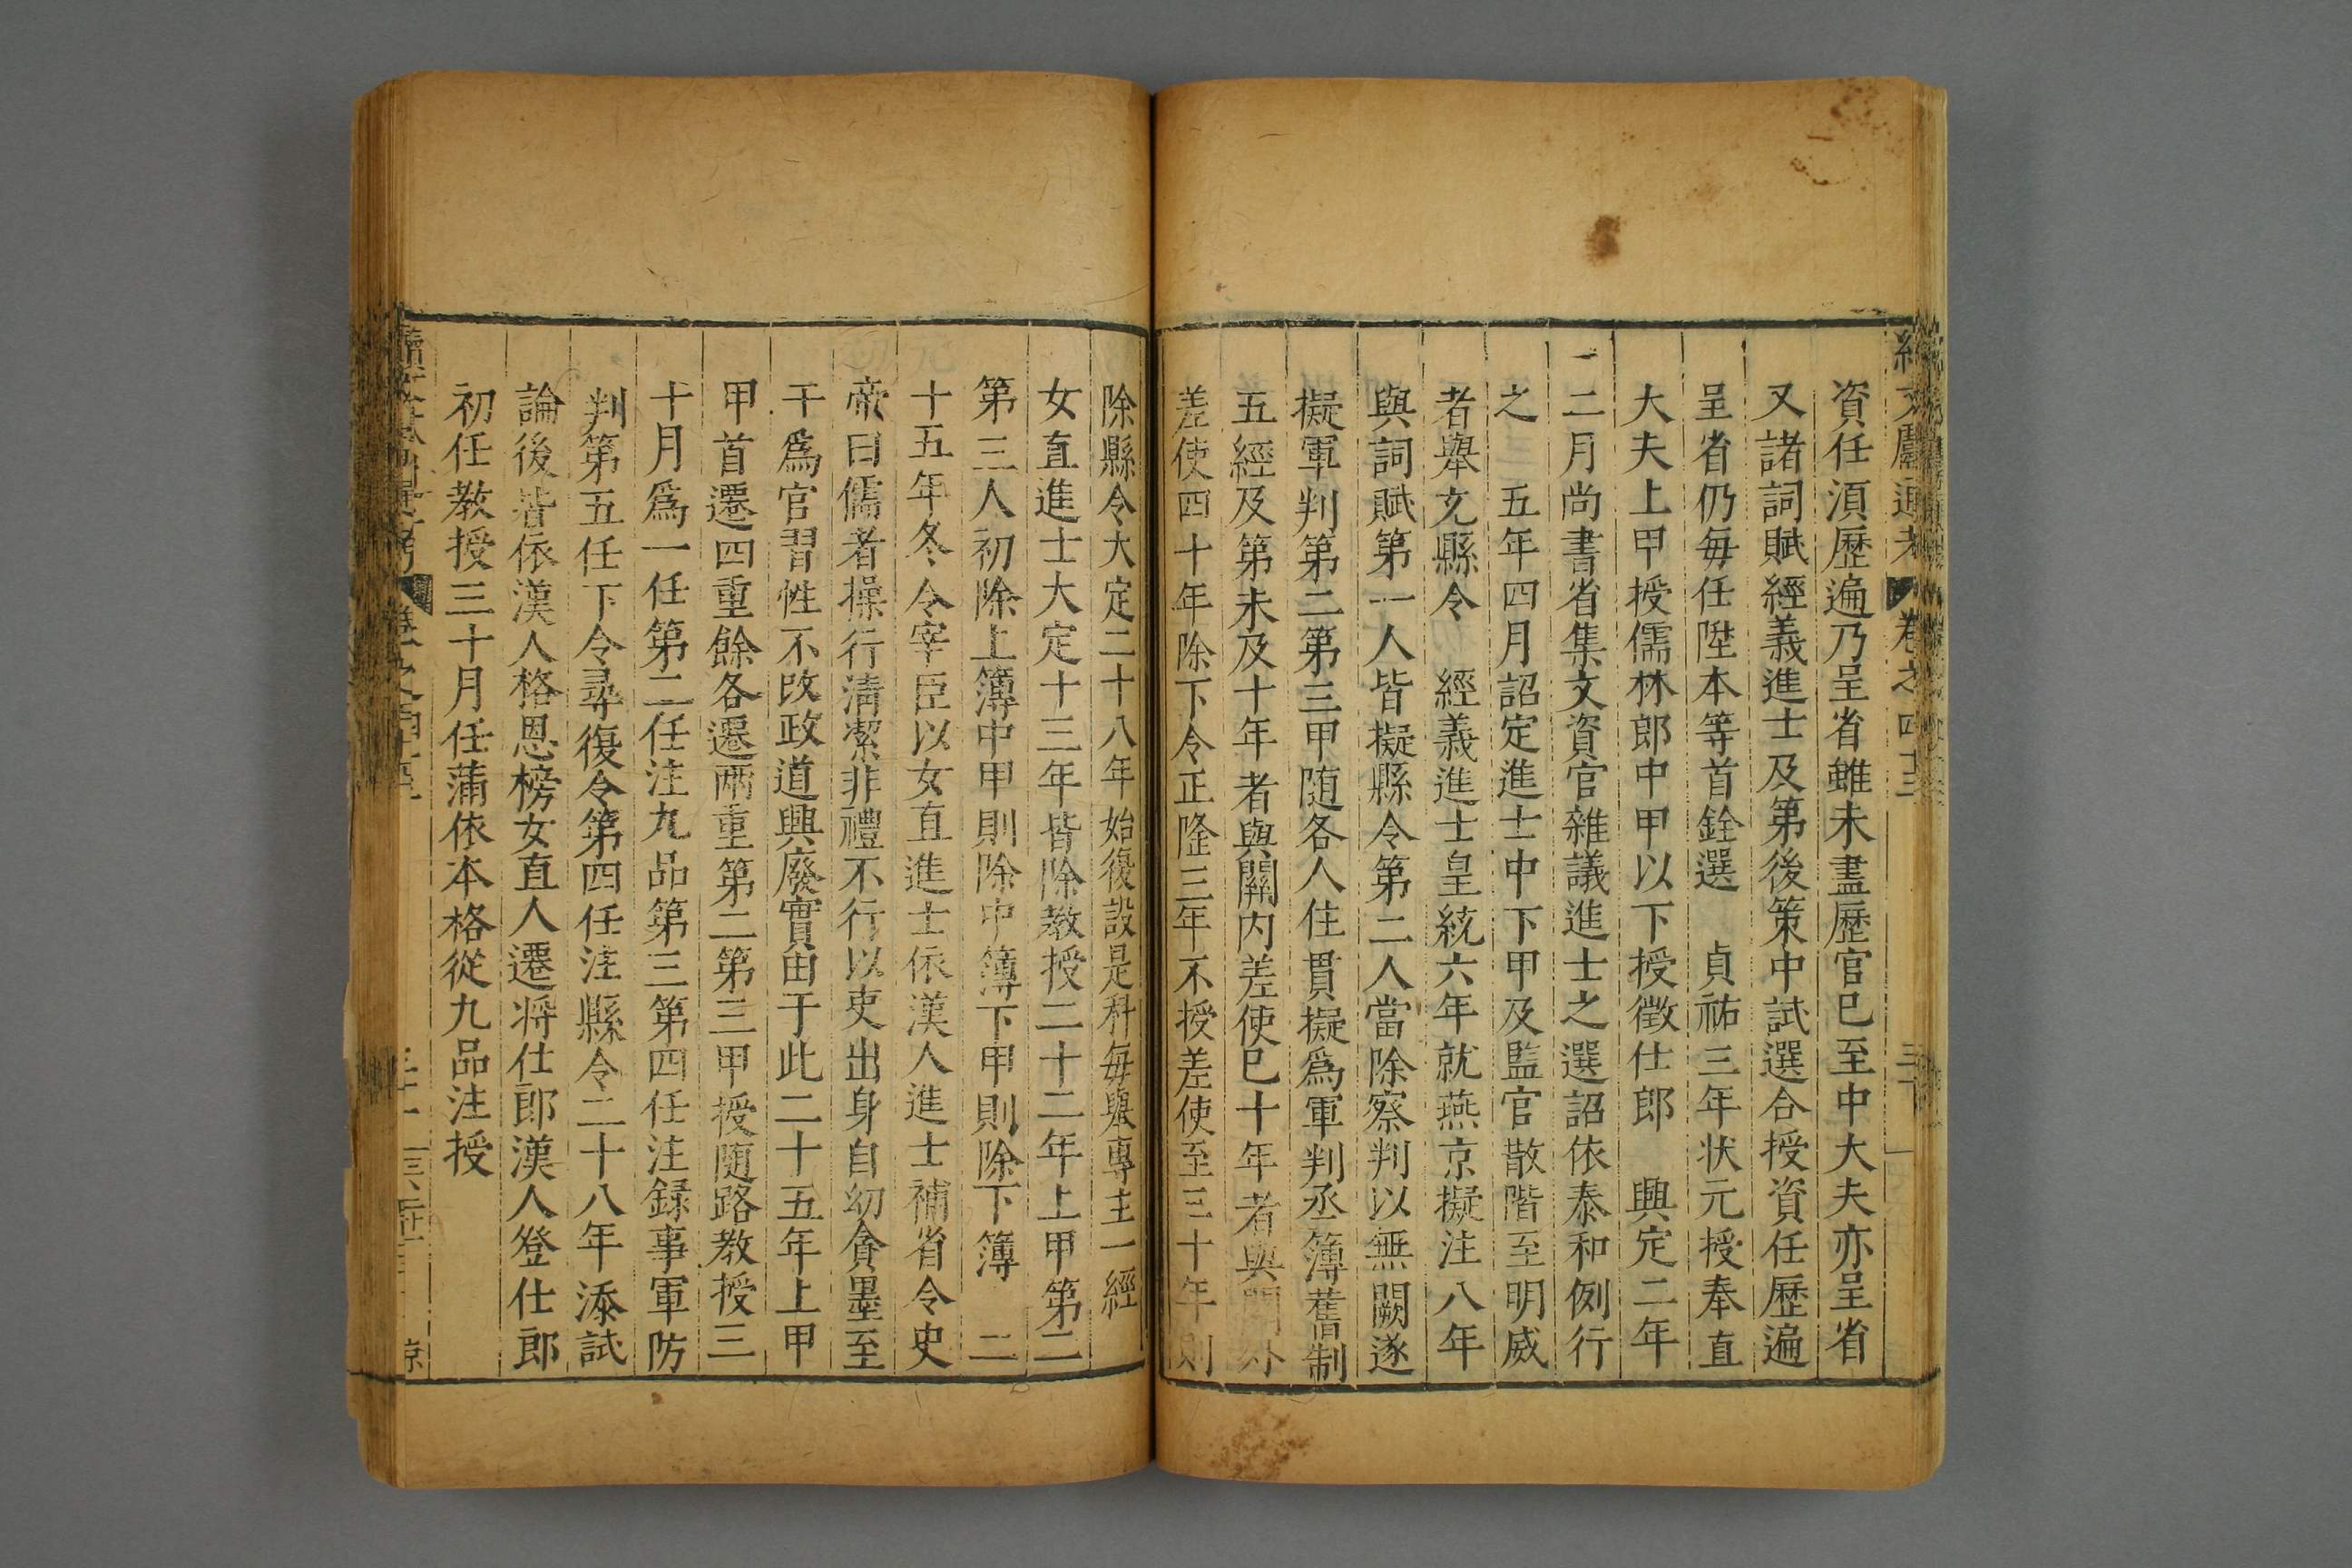 續文獻通考 卷之四十三 三十
資任須歷遍乃呈省雖未盡歷官已至中大夫亦呈省
又諸詞賦經義進士及第後策中試選合授資任歷遍
呈省仍每任陞本等首銓選 貞祐三年状元授奉直
大夫上甲授儒林郎中甲以下授徵仕郎 興定二年
二月尚書省集文資官雜議進士之選詔依泰和例行
之 五年四月詔定進士中下甲及監官散階至明威
者舉充縣令 經義進士皇統六年就燕京擬注八年
與詞賦第一人皆擬縣令第二人當除察判以無闕遂
擬軍判第二第三甲随各人住貫擬爲軍判丞簿舊制
五經及第未及十年者與關内差使已十年者與關外
差使四十年除下令正隆三年不授差使至三十年則
除縣令大定二十八年始復設是科每舉專主一經
女直進士大定十三年皆除教授二十二年上甲第二
第三人初除上簿中甲則除中簿下甲則除下簿 二
十五年冬令宰臣以女直進士依漢人進士補省令史
帝曰儒者操行清潔非禮不行以吏出身自幼貪墨至
于爲官習性不改政道興廢實由于此二十五年上甲
甲首遷四重餘各遷兩重第二第三甲授随路教授三
十月爲一任第二任注九品第三第四任注録事軍防
判第五任下令尋復令第四任注縣令二十八年添試
論後皆依漢人格恩榜女直人遷将仕郎漢人登仕郎
初任教授三十月任蒲依本格從九品注授